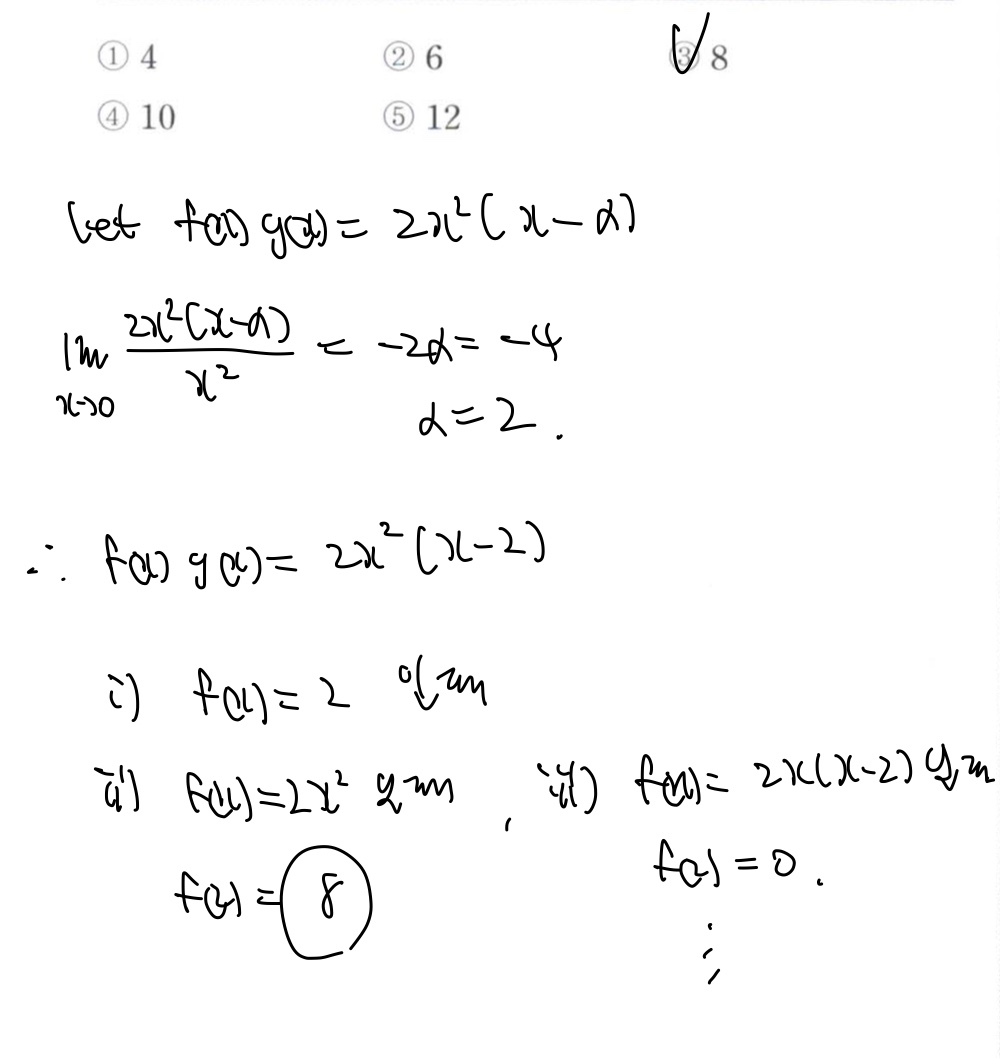 ① 4 ② 6 ③ 8
④ 10 ⑤ 12
let f(x) g(x) = 2x²(x-α)
lim x→0 2x²(x-α) / x² = -2α = -4
α = 2.
∴ f(x) g(x) = 2x²(x-2)
i) f(x) = 2 일 때
ii) f(x) = 2x² 일 때, iii) f(x) = 2x(x-2) 일 때
f(2) = 8 f(2) = 0.